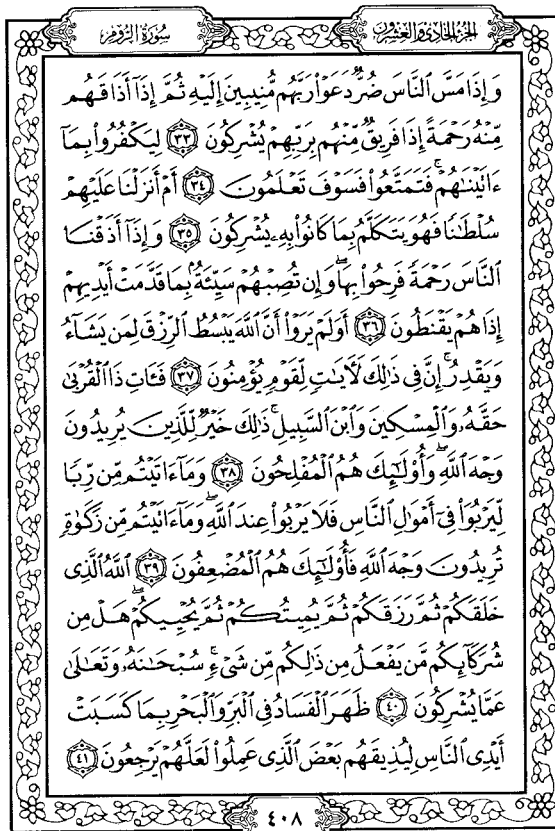 سُورَةُ الرُّومِ
الجُزْءُ الحَادِي وَالعِشْرُونَ
وَإِذَا مَسَّ ٱلنَّاسَ ضُرٌّ دَعَوْا۟ رَبَّهُم مُّنِيبِينَ إِلَيْهِ ثُمَّ إِذَآ أَذَاقَهُم
مِّنْهُ رَحْمَةً إِذَا فَرِيقٌ مِّنْهُم بِرَبِّهِمْ يُشْرِكُونَ ٣٣ لِيَكْفُرُوا۟ بِمَآ
ءَاتَيْنَٰهُمْ ۚ فَتَمَتَّعُوا۟ فَسَوْفَ تَعْلَمُونَ ٣٤ أَمْ أَنزَلْنَا عَلَيْهِمْ
سُلْطَٰنًا فَهُوَ يَتَكَلَّمُ بِمَا كَانُوا۟ بِهِۦ يُشْرِكُونَ ٣٥ وَإِذَآ أَذَقْنَا
ٱلنَّاسَ رَحْمَةً فَرِحُوا۟ بِهَا ۖ وَإِن تُصِبْهُمْ سَيِّئَةٌۢ بِمَا قَدَّمَتْ أَيْدِيهِمْ
إِذَا هُمْ يَقْنَطُونَ ٣٦ أَوَلَمْ يَرَوْا۟ أَنَّ ٱللَّهَ يَبْسُطُ ٱلرِّزْقَ لِمَن يَشَآءُ
وَيَقْدِرُ ۚ إِنَّ فِى ذَٰلِكَ لَءَايَٰتٍ لِّقَوْمٍ يُؤْمِنُونَ ٣٧ فَـَٔاتِ ذَا ٱلْقُرْبَىٰ
حَقَّهُۥ وَٱلْمِسْكِينَ وَٱبْنَ ٱلسَّبِيلِ ۚ ذَٰلِكَ خَيْرٌ لِّلَّذِينَ يُرِيدُونَ
وَجْهَ ٱللَّهِ ۖ وَأُو۟لَٰٓئِكَ هُمُ ٱلْمُفْلِحُونَ ٣٨ وَمَآ ءَاتَيْتُم مِّن رِّبًا
لِّيَرْبُوَا۟ فِىٓ أَمْوَٰلِ ٱلنَّاسِ فَلَا يَرْبُوا۟ عِندَ ٱللَّهِ ۖ وَمَآ ءَاتَيْتُم مِّن زَكَوٰةٍ
تُرِيدُونَ وَجْهَ ٱللَّهِ فَأُو۟لَٰٓئِكَ هُمُ ٱلْمُضْعِفُونَ ٣٩ ٱللَّهُ ٱلَّذِى
خَلَقَكُمْ ثُمَّ رَزَقَكُمْ ثُمَّ يُمِيتُكُمْ ثُمَّ يُحْيِيكُمْ ۖ هَلْ مِن
شُرَكَآئِكُم مَّن يَفْعَلُ مِن ذَٰلِكُم مِّن شَىْءٍ ۚ سُبْحَٰنَهُۥ وَتَعَٰلَىٰ
عَمَّا يُشْرِكُونَ ٤٠ ظَهَرَ ٱلْفَسَادُ فِى ٱلْبَرِّ وَٱلْبَحْرِ بِمَا كَسَبَتْ
أَيْدِى ٱلنَّاسِ لِيُذِيقَهُم بَعْضَ ٱلَّذِى عَمِلُوا۟ لَعَلَّهُمْ يَرْجِعُونَ ٤١
٤٠٨